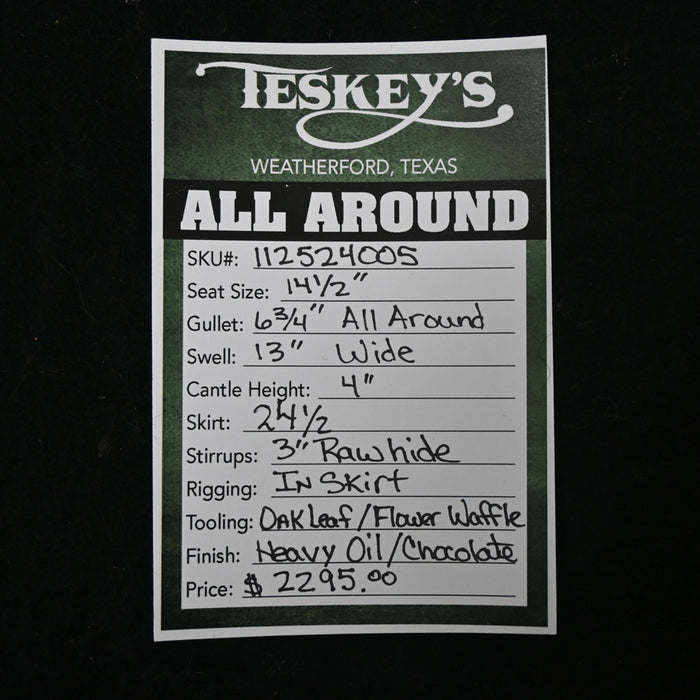 TESKEY'S
WEATHERFORD, TEXAS
ALL AROUND
SKU#: 112524005
Seat Size: 14 1/2"
Gullet: 6 3/4" All Around
Swell: 13" Wide
Cantle Height: 4"
Skirt: 24 1/2
Stirrups: 3" Rawhide
Rigging: IN SKirt
Tooling: OAK Leaf / Flower Waffle
Finish: Heavy Oil / Chocolate
Price: $ 2295.00